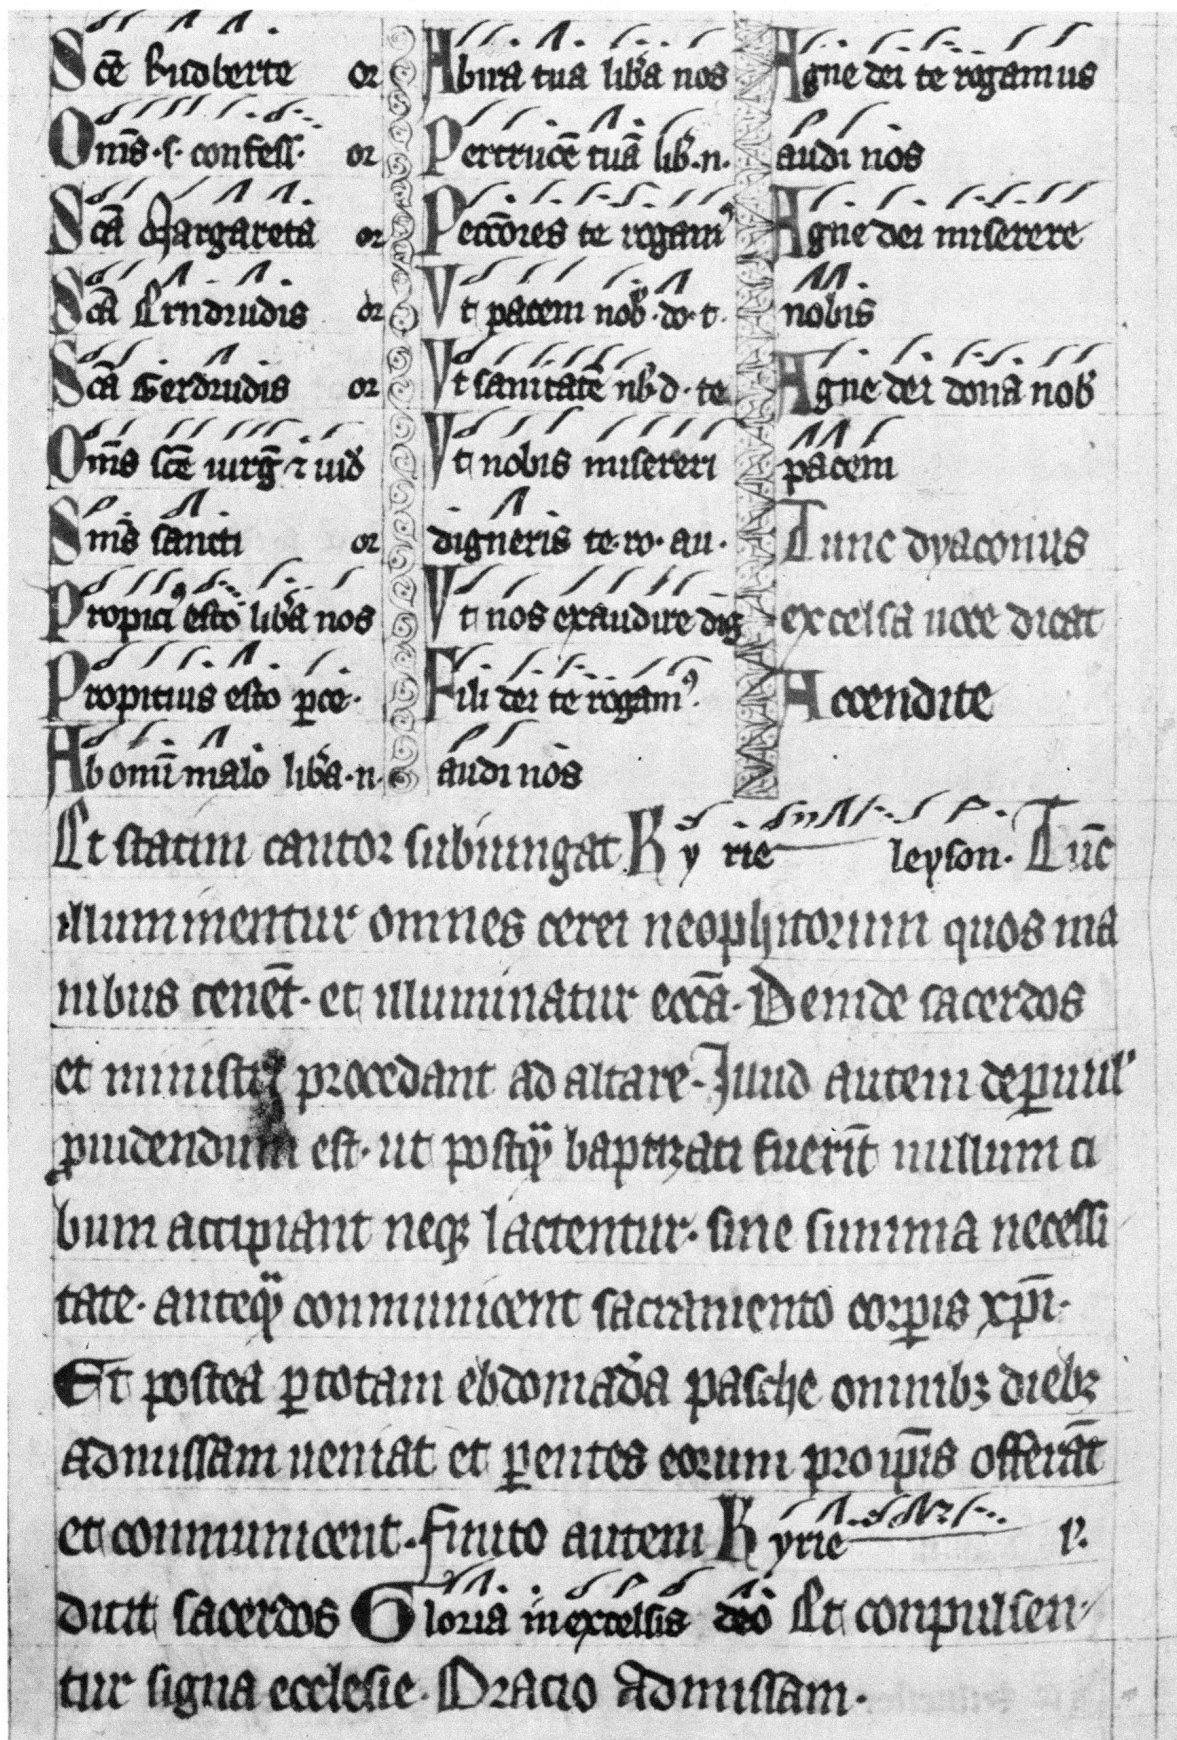 Sc̄e Rudberte or
Om̄s · s · confess · or
Sc̄a Margareta or
Sc̄a Erndrudis or
Sc̄a Gerdrudis or
Om̄s sc̄e uirḡ ⁊ uid
Om̄s sancti or
Propiciꝰ esto lib̓a nos
Propitius esto ꝑce ·
Ab omī malo lib̓a · n ·
Ab ira tua lib̓a nos
Per crucē tuā lib̓ · n ·
Peccōres te rogamꝰ
Vt pacem nob̓ · do · t ·
Vt sanitatē nb̓ d · te
Vt nobis misereri
digneris te · ro · au ·
Vt nos exaudire dig
Fili dei te rogamꝰ ·
audi nos
Agne dei te rogamus
audi nos
Agne dei miserere
nobis
Agne dei dona nob̓
pacem
Tunc dyaconus
excelsa uoce dicat
Accendite
Et statim cantor subiungat Ky rie leyson · Tūc
illuminentur omnes cerei neophitorum quos ma
nibus tenēt · et illuminatur ecc̄a · Deinde sacerdos
et ministri procedant ad altare · Illud autem de ꝑuul̓
ꝓuidendum est · ut postq̄ baptizati fuerīt nullum ci
bum accipiant neqꝫ lactentur · sine summa necessi
tate · anteq̄ conmunicent sacramento corꝑis xp̄i ·
Et postea ꝑ totam ebdomada pasche omnibꝫ diebꝫ
ad missam ueniāt et ꝑentes eorum pro ip̄is offerāt
et conmunicent · finito autem Kyrie l̓ ·
dicit sacerdos Gloria in excelsis deo Et conpulsen
tur signa ecclesie · Oracio ad missam ·